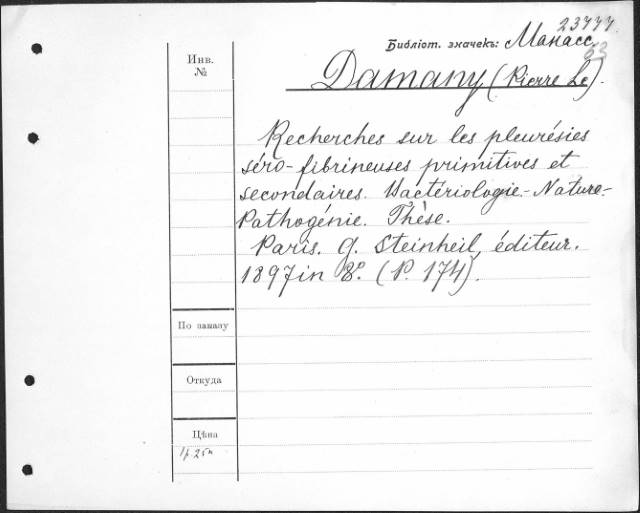 23777.
Библіот. значекъ: Манасс.
63
Инв.
№
Damany (Pierre Le).
Recherches sur les pleurésies
séro-fibrineuses primitives et
secondaires. Bactériologie.-Nature.-
Pathogénie. Thèse.
Paris. G. Steinheil, éditeur.
1897 in 8°. (P. 174).
По заказу
Откуда
Цѣна
1р 25к